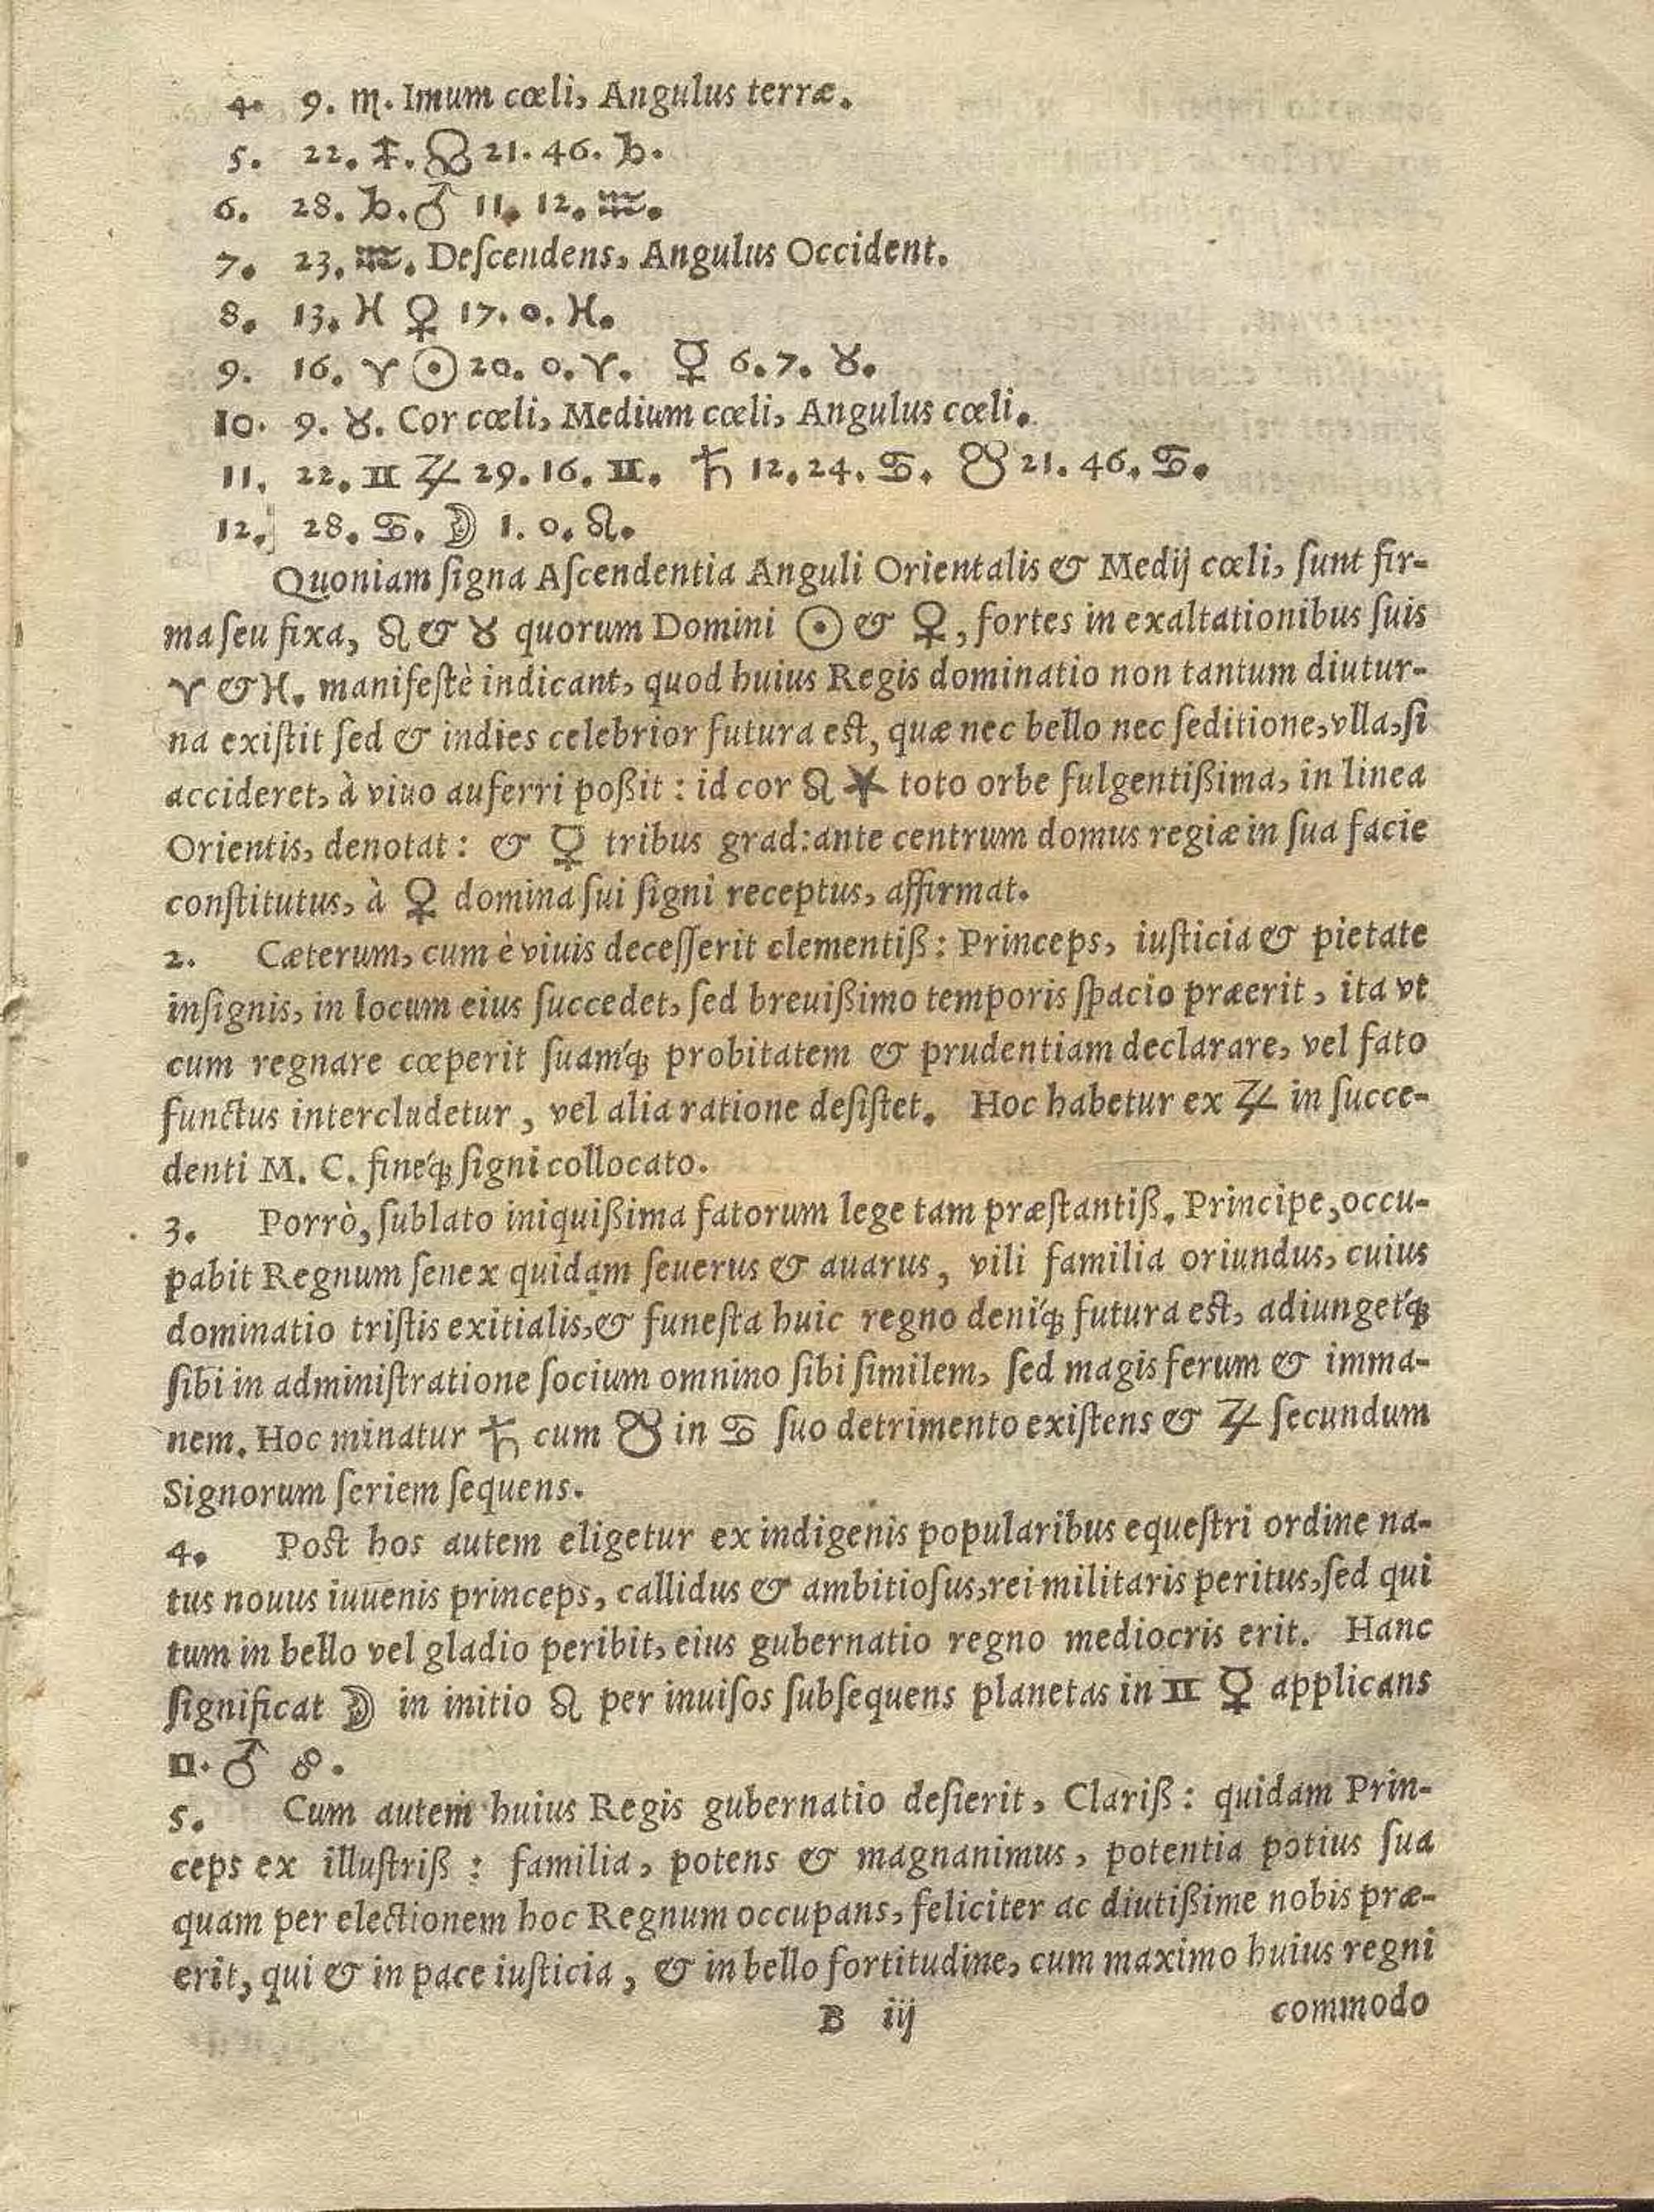 4. 9. ♏. Imum cœli, Angulus terræ.
5. 22. ♐. ☊ 21. 46. ♑.
6. 28. ♑. ♂ 11. 12. ♒.
7. 23. ♒. Deſcendens, Angulus Occident.
8. 13. ♓ ♀ 17. 0. ♓.
9. 16. ♈ ☉ 20. 0. ♈. ☿ 6. 7. ♉.
10. 9. ♉. Cor cœli, Medium cœli, Angulus cœli.
11. 22. ♊ ♃ 29. 16. ♊. ♄ 12. 24. ♋. ☋ 21. 46. ♋.
12. 28. ♋. ☽ 1. 0. ♌.
Quoniam ſigna Aſcendentia Anguli Orientalis & Medij cœli, ſunt fir-
ma ſeu fixa, ♌ & ♉ quorum Domini ☉ & ♀, fortes in exaltationibus ſuis
♈ & ♓. manifeſtè indicant, quod huius Regis dominatio non tantum diutur-
na exiſtit ſed & indies celebrior futura eſt, quæ nec bello nec ſeditione, vlla, ſi
accideret, à viuo auferri poßit : id cor ♌ ★ toto orbe fulgentißima, in linea
Orientis, denotat : & ☿ tribus grad: ante centrum domus regiæ in ſua facie
conſtitutus, à ♀ domina ſui ſigni receptus, affirmat.
2. Cæterum, cum è viuis deceſſerit clementiß : Princeps, iuſticia & pietate
inſignis, in locum eius ſuccedet, ſed breuißimo temporis ſpacio præerit, ita vt
cum regnare cœperit ſuamq́ꝫ probitatem & prudentiam declarare, vel fato
functus intercludetur, vel alia ratione deſiſtet. Hoc habetur ex ♃ in ſucce-
denti M. C. fineq́ꝫ ſigni collocato.
3. Porrò, ſublato iniquißima fatorum lege tam præſtantiß. Principe, occu-
pabit Regnum ſenex quidam ſeuerus & auarus, vili familia oriundus, cuius
dominatio triſtis exitialis, & funeſta huic regno deniq́ꝫ futura eſt, adiungetq́ꝫ
ſibi in adminiſtratione ſocium omnino ſibi ſimilem, ſed magis ferum & imma-
nem. Hoc minatur ♄ cum ☋ in ♋ ſuo detrimento exiſtens & ♃ ſecundum
Signorum ſeriem ſequens.
4. Poſt hos autem eligetur ex indigenis popularibus equeſtri ordine na-
tus nouus iuuenis princeps, callidus & ambitioſus, rei militaris peritus, ſed qui
tum in bello vel gladio peribit, eius gubernatio regno mediocris erit. Hanc
ſignificat ☽ in initio ♌ per inuiſos ſubſequens planetas in ♊ ☿ applicans
□. ♂ ☍.
5. Cum autem huius Regis gubernatio deſierit, Clariß : quidam Prin-
ceps ex illuſtriß : familia, potens & magnanimus, potentia potius ſua
quam per electionem hoc Regnum occupans, feliciter ac diutißime nobis præ-
erit, qui & in pace iuſticia, & in bello fortitudine, cum maximo huius regni
B iij commodo